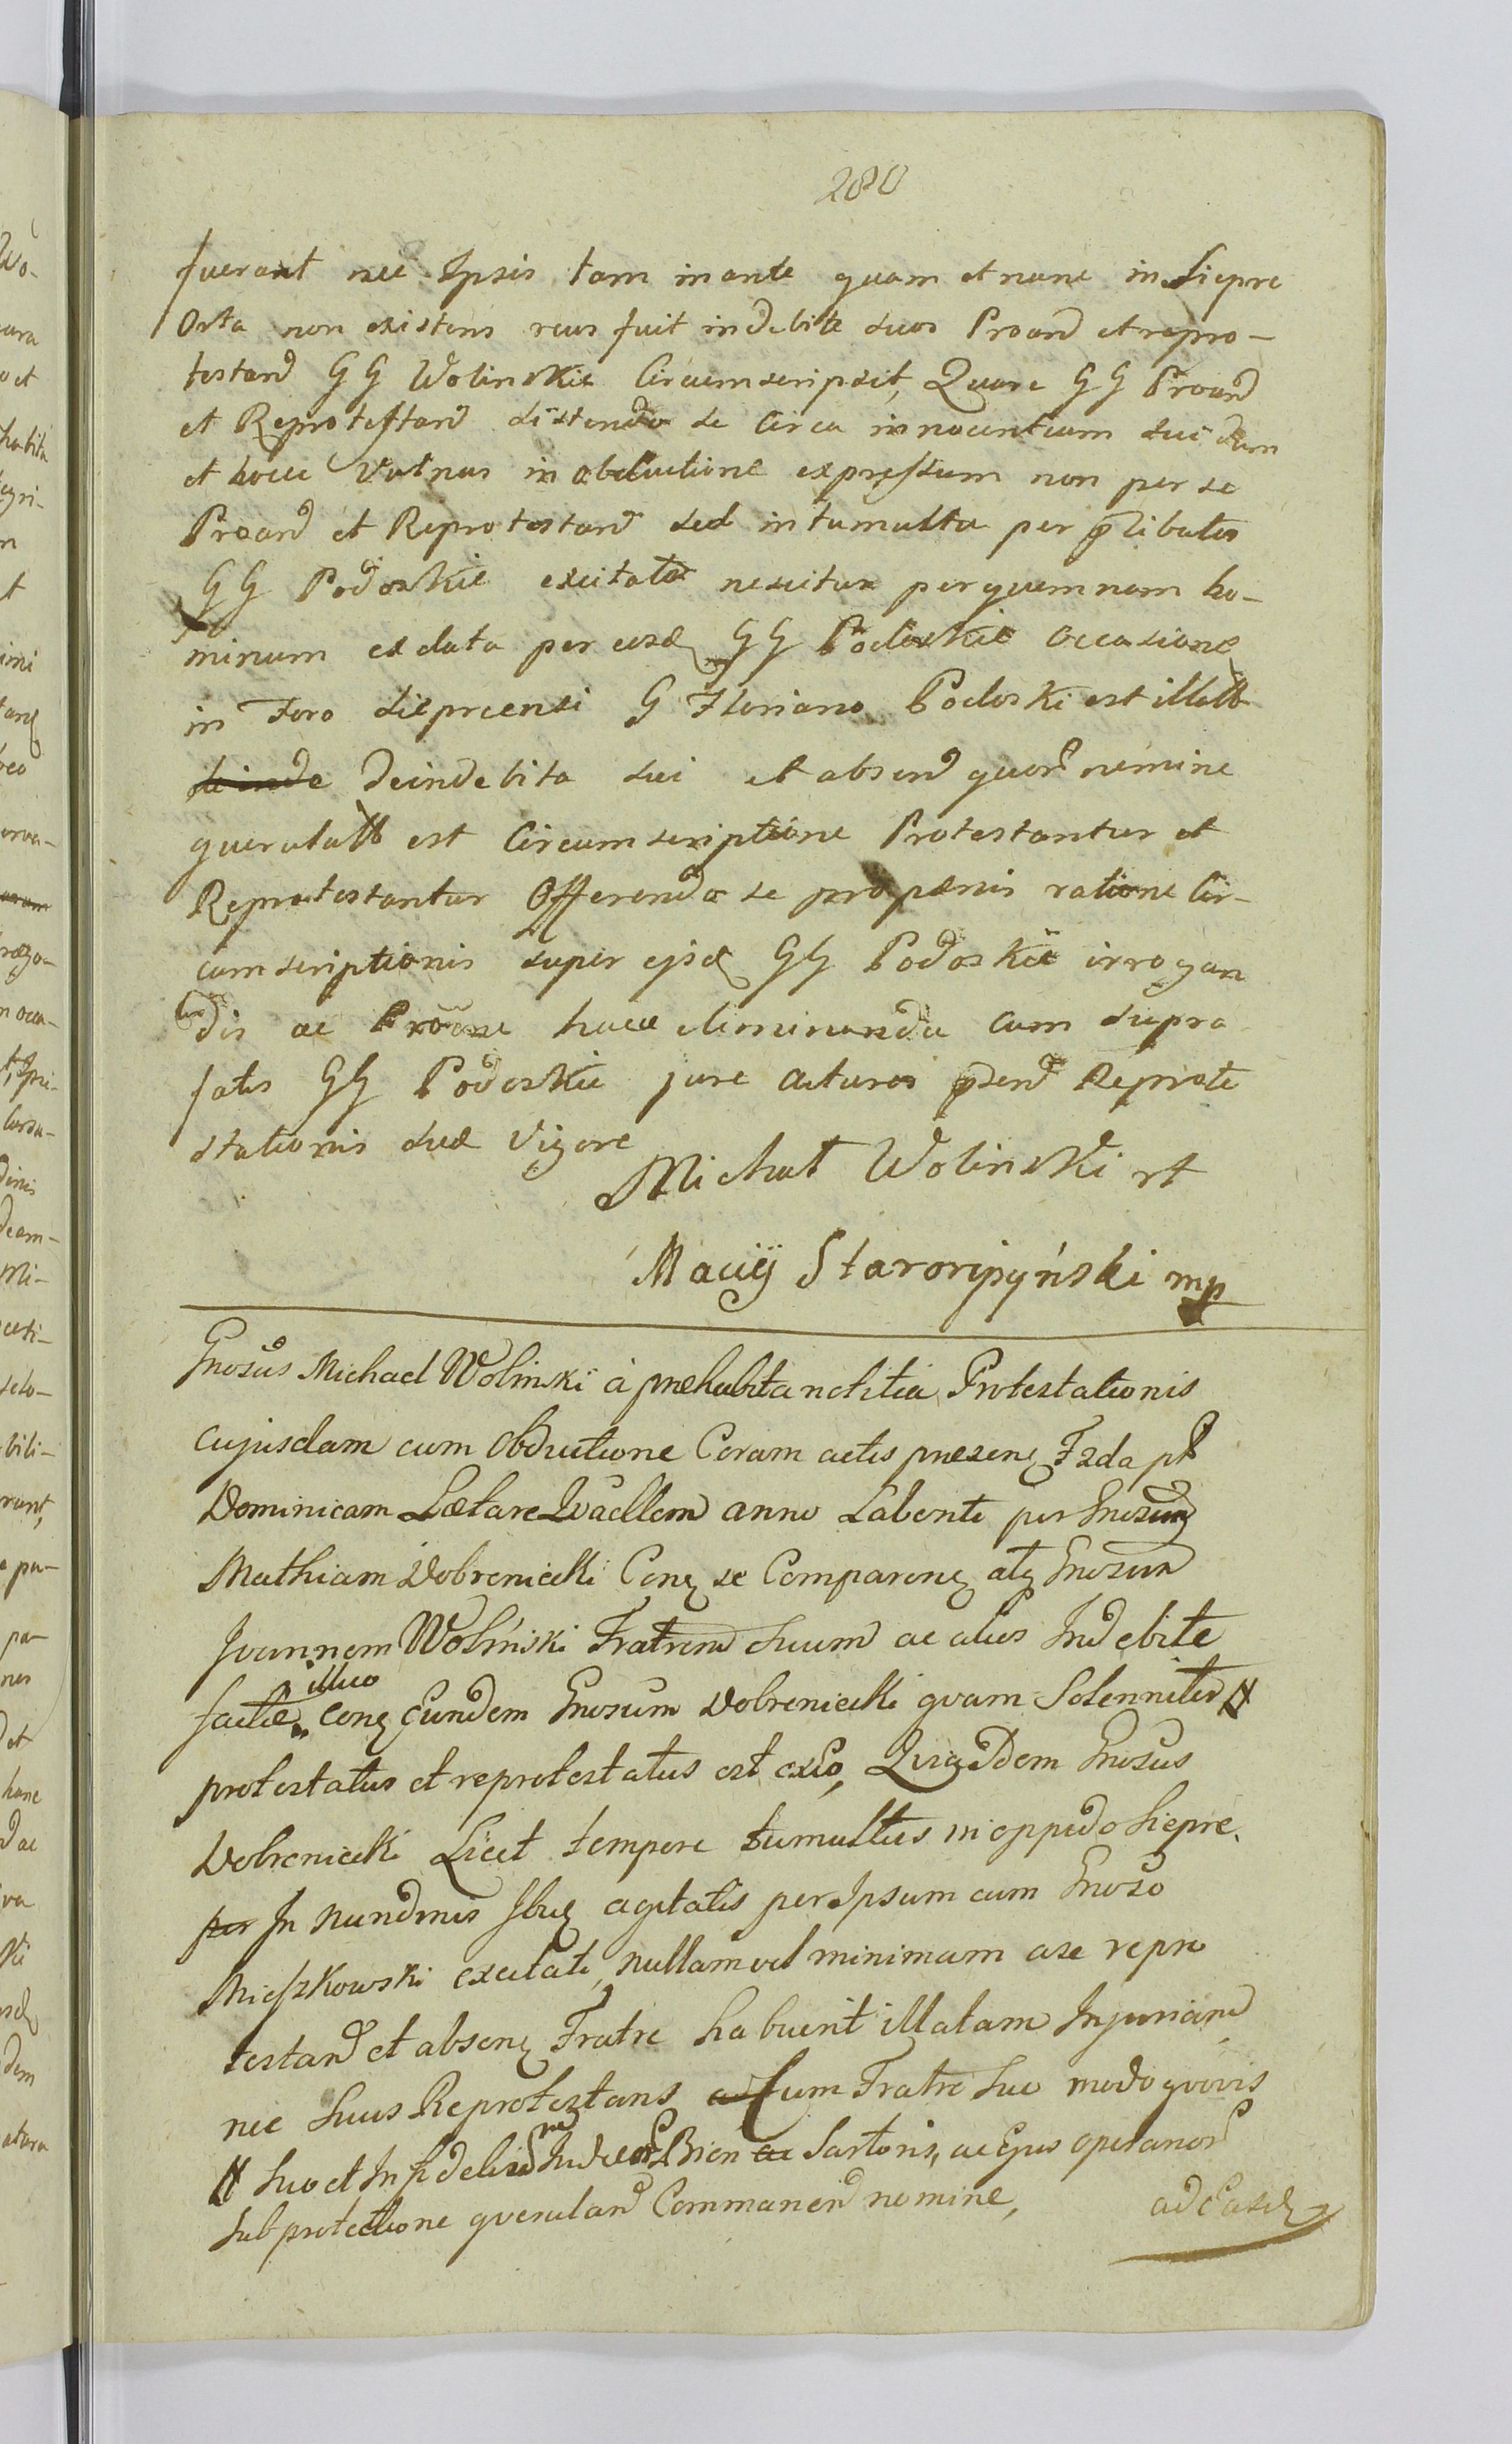 280
fuerant nec Ipsis tam in ante quam et nunc in Siepre
Orta non existens reus fuit indebite suos Proand et repro-
testand GG Wolinskie Circumscripsit, Quare GG Proand
et Reprotestand sistendo se circa innocentiam sui dum
et hocce Vulnus in obductione expressum non per se
Proand et Reprotestand sed in tumultu per plibatos
GG Podoskie excitato nescitur per quemnam ho-
minum ex data per eosd GG Podoskie occasione
in Foro Sieprcensi G Floriano Podoski est illatt
de inde Deindebita sui et absend quor nomine
querulatt est Circumscriptione Protestantur et
Reprotestantur Offerendo se pro pænis ratione Cir-
cumscriptionis super ejsd GG Podoskie irrogan
dis ac Proone hacce eliminanda cum supra
fatis GG Podoskie jure acturos psend Reprote
stationis suæ Vigore
Michał Wolinski rt
Maciey Starorypyński mp
Gnosus Michael Wolinski à præhabita notitia Protestationis
cujusdam cum Obductione Coram actis præsenq Fzda pt
Dominicam Lætare Quadlem anno Labente per Gnosum
Mathiam Dobrenicki Conq se Comparenq atq Gnosum
Joannem Wolinski Fratrem Suum ac alios Indebite
factæ illico Conq Eundem Gnosum Dobrenicki quam Solenniter #
protestatus et reprotestatus est exio, Quia Idem Gnosus
Dobrenicki Licet tempore tumultus in oppido Siepre
per In Nundinis Ibiq agitatis per Ipsum cum Gnoso
Mieszkowski excitati, nullam vel minimam a se repro
testand et absenq Fratre habuerit illatam Injuriam
nec Suus Reprotestans ac Cum Fratre Suo modo quovis
# Suo et Infidelium Judæor Bien ac Sartoris, ac Ejus operanor
Sub protectione queruland Commanend nomine,
ad Easd